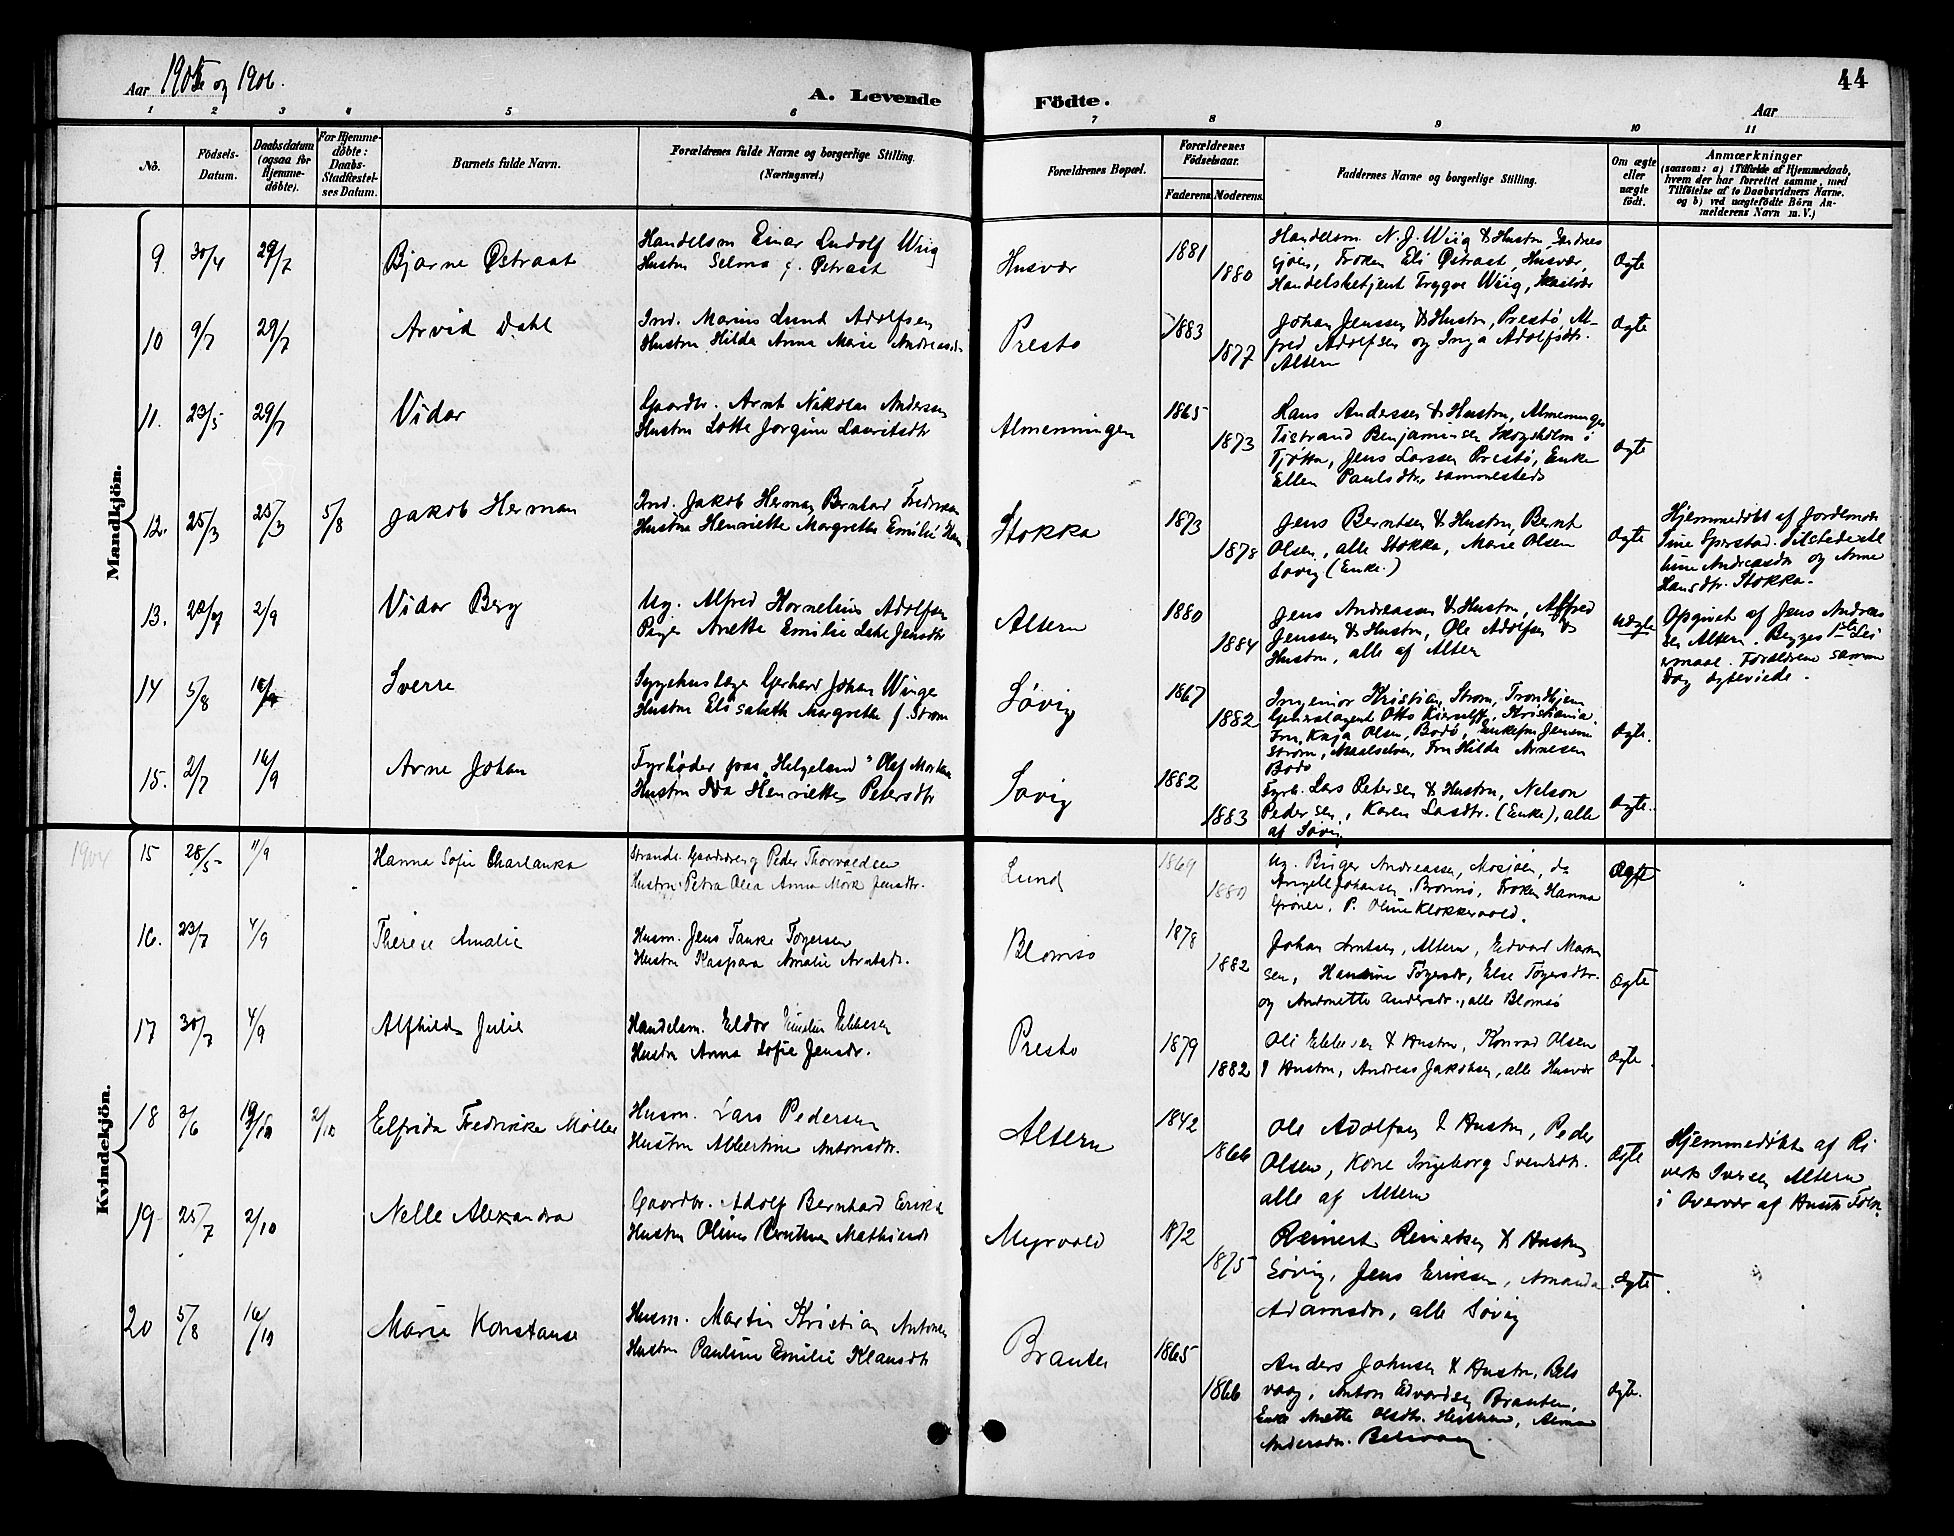 Aar 1905 og 1906.
A. Levende Födte.
Aar
44
1 2 3 4 5 6 7 8 9 10 11
No.
Födsels-Datum.
Daabsdatum (ogsaa for Hjemme-döbte).
For Hjemme-döbte: Daabs-Stadfæstel-ses Datum.
Barnets fulde Navn.
Forældrenes fulde Navne og borgerlige Stilling. (Næringsvei.)
Forældrenes Bopæl.
Forældrenes Födselsaar.
Faderens.
Moderens.
Faddernes Navne og borgerlige Stilling.
Om ægte eller uægte födt.
Anmærkninger
(saasom: a) i Tilfælde af Hjemmedaab,
hvem der har forrettet samme, med
Tilföielse af to Daabsvidners Navne,
og b) ved uægtefödte Börn An-
melderens Navn m. V.)
Mandkjön.
9. 30/4 29/7 Bjarne Østraat
Handelsm Einar Ludolf Wiig
Hustru Selma f. Østraat
Husvær 1881 1880
Handelsm. N. J. Wiig & Hustru, Sandnes
sjøen, Frøken Eli Østraat, Husvær,
Handelsbetjent Trygve Wiig,
Ægte
10 9/7 29/7 Arvid Dahl
Ind. Marius Lund Adolfsen
Hustru Hilda Anna Marie Andreasdr
Prestø 1883 1877
Johan Jenssen & Hustru, Prestø, Al-
fred Adolfsen og Inga Adolfsdtr.
Altern
Ægte
11. 23/5 29/7 Vidar
Gaardbr. Arnt Nikolai Andersen
Hustru Lotte Jorgine Lauritsdtr
Almenningen 1865 1873
Hans Anderssen & Hustru, Almenningen
Tistrand Benjaminsen Skogsholm i
Tjøtta, Jens Larssen Prestø, Enke
Ellen Paulsdtr, sammesteds
Ægte
12. 25/3 25/3 5/8 Jakob Herman
Ind. Jakob Herman Berntad Fredriksen
Hustru Henriette Margrethe Emilie Han
Stokka 1873 1878
Jens Berntsen & Hustru, Bernt
Olsen, alle Stokka, Marie Olsen
Søvig (Enke.)
Ægte
Hjemmedøbt af Jordemor
Sine Spirstad. Tilstede
Andreasdr og Anne
Hansdtr. Stokka.
13. 2/9 Vidar Berg
Ug. Alfred Kornelius Adolfsen
Pige Anette Emilie Jensdtr
Altern 1880 1884
Jens Andreassen & Hustru, Alfred
Jenssen & Hustru, Ole Adolfsen &
Hustru, alle af Altern
Uægte
Opgivet af Jens Andreas
sen Altern. Begges 1ste Lei
ermaal. Forældrene samme
Dag ægteviede.
14 5/8 Sverre
Sygehuslæge Gerhard Johan Winge
Hustru Elisabeth Margrethe f. Strøm
Søvig 1867 1882
Ingeniør Kristian Strøm, Trondhjem
Generalagent Otto Kierulff, Kristiania.
Fru Kaja Olsen, Bodø, Enkefru Jensine
Strøm, Maalselven, Fru Hilda Arnesen
Bodø
Ægte.
15. 2/7 16/9 Arne Johan
Fyrbøder paa "Helgeland" Olaf
Hustru Ida Henriette Petersdtr
Søvig 1882 1883
Fyrb. Lars Petersen & Hustru, Nelson
Pedersen, Karen Larsdtr. (Enke), alle
af Søvig
Ægte.
Kvindekjön.
1904 15 28/5 11/9 Hanna Sofie Charlanka
Gaardbrug Peder Thorvaldsen
Hustru Petra Olea Anna Mørk Jensdtr.
Lund 1869 1880
Ug. Birger Andreassen, Mosjøen, do
Johansen, Brønnø, Frøken Hanna
Grøner, P. Oline Klokkervold.
Ægte
16. 23/7 4/9 Therese Amalie
Husm. Jens Tanke Tøgersen
Hustru Kaspara Amalie Arntsdr.
Blomsø 1878 1882
Johan Arntsen, Altern, Edvard Marin
sen, Hansine Tøgersdr, Else Tøgersdtr.
og Antonette Andersdr., alle Blomsø
Ægte
17 30/7 4/9 Alfhild Julie
Handelsm. Eldor Ebbesen
Hustru Anna Sofie Jensdr.
Prestø 1879 1882
Oli Ebbesen & Hustru, Konrad Olsen
& Hustru, Andreas Jakobsen, alle Husvær
Ægte.
18 3/6 19/10 2/10 Elfrida Fredrikke Møller
Husm. Lars Pedersen
Hustru Albertine Antonsdtr.
Altern 1842 1866
Ole Adolfsen & Hustru, Peder
Olsen, Kone Ingeborg Svendsdtr.
alle af Altern
Ægte
Hjemmedøbt af
Iversen Altern
i Overvær af
19 25/7 2/10 Nelle Alexandra
Gaardbr. Adolf Bernhard Eriks
Hustru Oline Mathiasdr
Myrvold 1872 1875
Reinert Reinertsen & Hustru
Søvig, Jens Eriksen, Amanda
Adamsdr, alle Søvig
Ægte.
20 5/8 16/10 Marie Konstanse
Husm. Martin Kristian Antonsen
Hustru Pauline Emilie Klausdtr
Branten 1865 1866
Anders Johnsen & Hustru, Bels
vaag, Anton Edvardsen Branten,
Enke Anette Olsdtr.
Andersdr. Belsvaag.
Ægte.